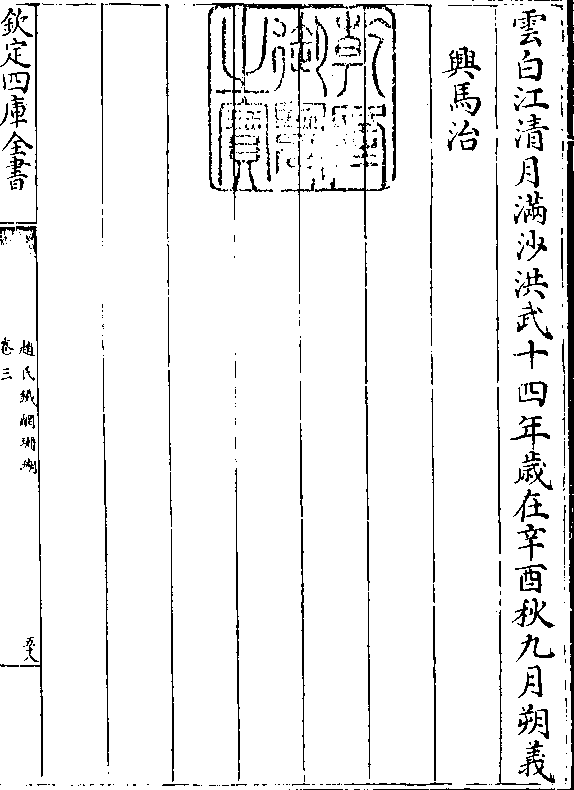 雲白江清月滿沙洪武十四年歳在辛酉秋九月朔義
興馬治
乾隆御覽之寶
欽定四庫全書
趙氏鐵網珊瑚
卷三
五十八